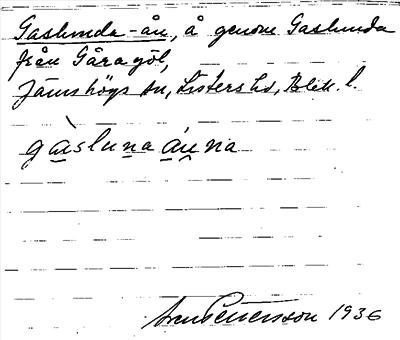 Gaslunda-ån, å genom Gaslunda
från Gåragöl,
Jämshögs sn, Listers hd, Blek. l.
gàslunaánna
Pettersson 1936